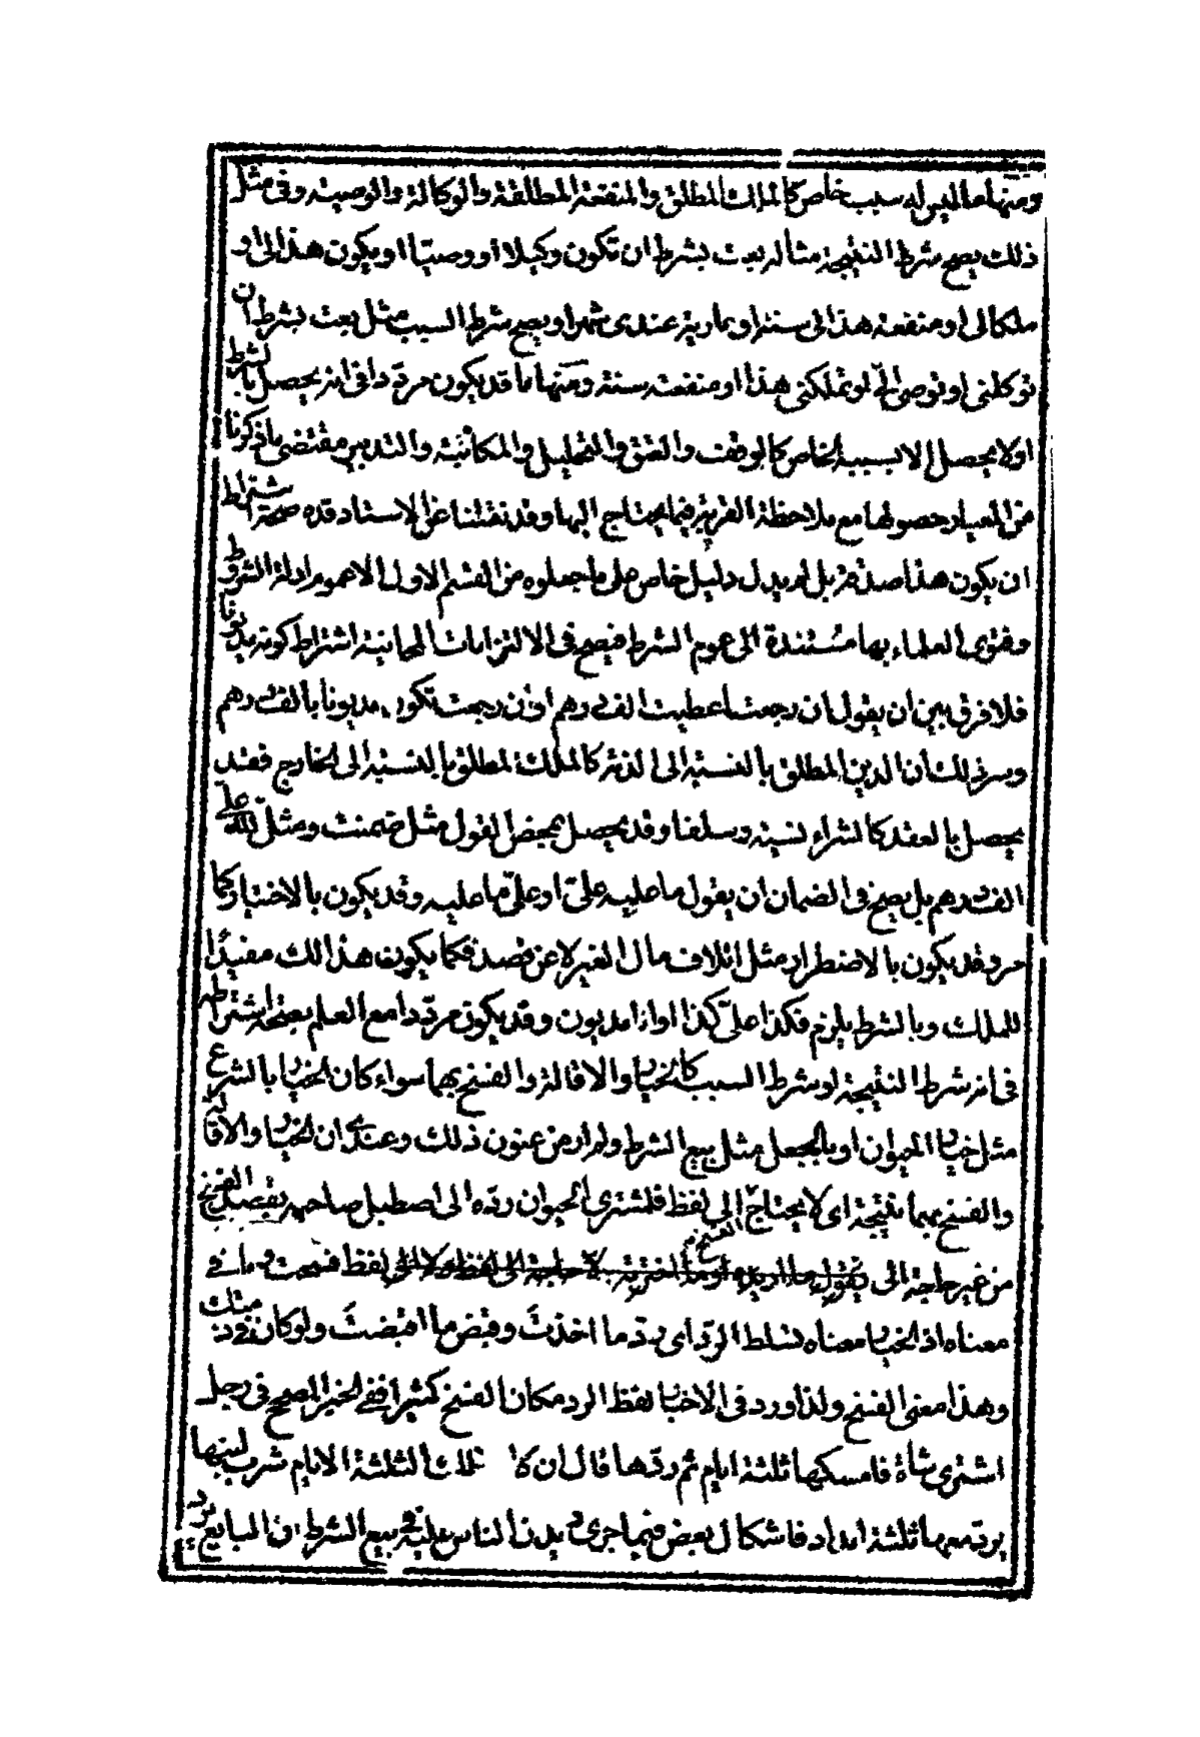 ومنها ما ليس له سبب خاص كالملك المطلق والمنفعة المطلقة والوكالة والوصية وفى مثل
ذلك يصح شرط النتيجة مثاله بعت بشرط ان تكون وكيلا او وصيا او يكون هذا لى او
ملكا لى او منفعة هذا لى سنة او عارية عندى شهرا ويصح شرط السبب مثل بعت بشرط ان
توكلنى او توصى الىّ او تملكنى هذا او منفعته سنة ومنها ما قد يكون مردّدا فى انه يحصل بالشرط
او لا يحصل الا بسببه الخاص كالوقف والعتق والتحليل والمكاتبة والتدبير مقتضى ما ذكرنا
من المعيار حصولها مع ملاحظة القربة فيما يحتاج اليها وقد نقلنا عن الاستاد قده صحة اشتراط
ان يكون هذا صدقة بل لم يدل دليل خاص على ما جعلوه من القسم الاول الا عموم ادلة الشروط
وفتوى العلماء بها مستندة الى عموم الشرط فيصح فى الالتزامات المجانية اشتراط كونه مديونا
فلا فرق بين ان يقول ان رجعت اعطيت الف درهم او ان رجعت تكون مديونا بالف درهم
وسر ذلك ان الدين المطلق بالنسبة الى الذمة كالملك المطلق بالنسبة الى الخارج فقد
يحصل بالعقد كالشراء نسية وسلفا وقد يحصل بمحض القول مثل ضمنت ومثل لله علىّ
الف درهم بل يصح فى الضمان ان يقول ما عليه علىّ او علىّ ما عليه وقد يكون بالاختيار كما
مر وقد يكون بالاضطرار مثل اتلاف مال الغير لا عن قصد فكما يكون هذا لك مفيدًا
للملك وبالشرط يلزم فكذا علىّ كذا او انا مديون وقد يكون مردّدا مع العلم بصحة اشتراطه
فى انه شرط النتيجة او شرط السبب كالخيار والاقالة والفسخ بهما سواء كان الخيار بالشرع
مثل خيار الحيوان او بالجعل مثل بيع الشرط ولم ار من عنون ذلك وعندى ان الخيار والاقالة
والفسخ بهما نتيجة اى لا يحتاج الى لفظ فلمشترى الحيوان ردّه الى اصطبل صاحبه بقصد الفسخ
من غير حاجة الى لفظ فسخت وما فى
معناه اذ الخيار معناه تسلط الردّ اى ردّ ما اخذت وقبض ما اقبضت ولو كان فى ذمتك
وهذا معنى الفسخ ولذا ورد فى الاخبار لفظ الرد مكان الفسخ كثيرا ففى الخبر الصحيح فى رجل
اشترى شاة فامسكها ثلثة ايام ثم ردّها قال ان كان تلك الثلثة الايام شرب لبنها
يردّ معها ثلثة امداد فاشكال بعض فيما جرى ديدن الناس عليه فى بيع الشرط ان البايع يرد